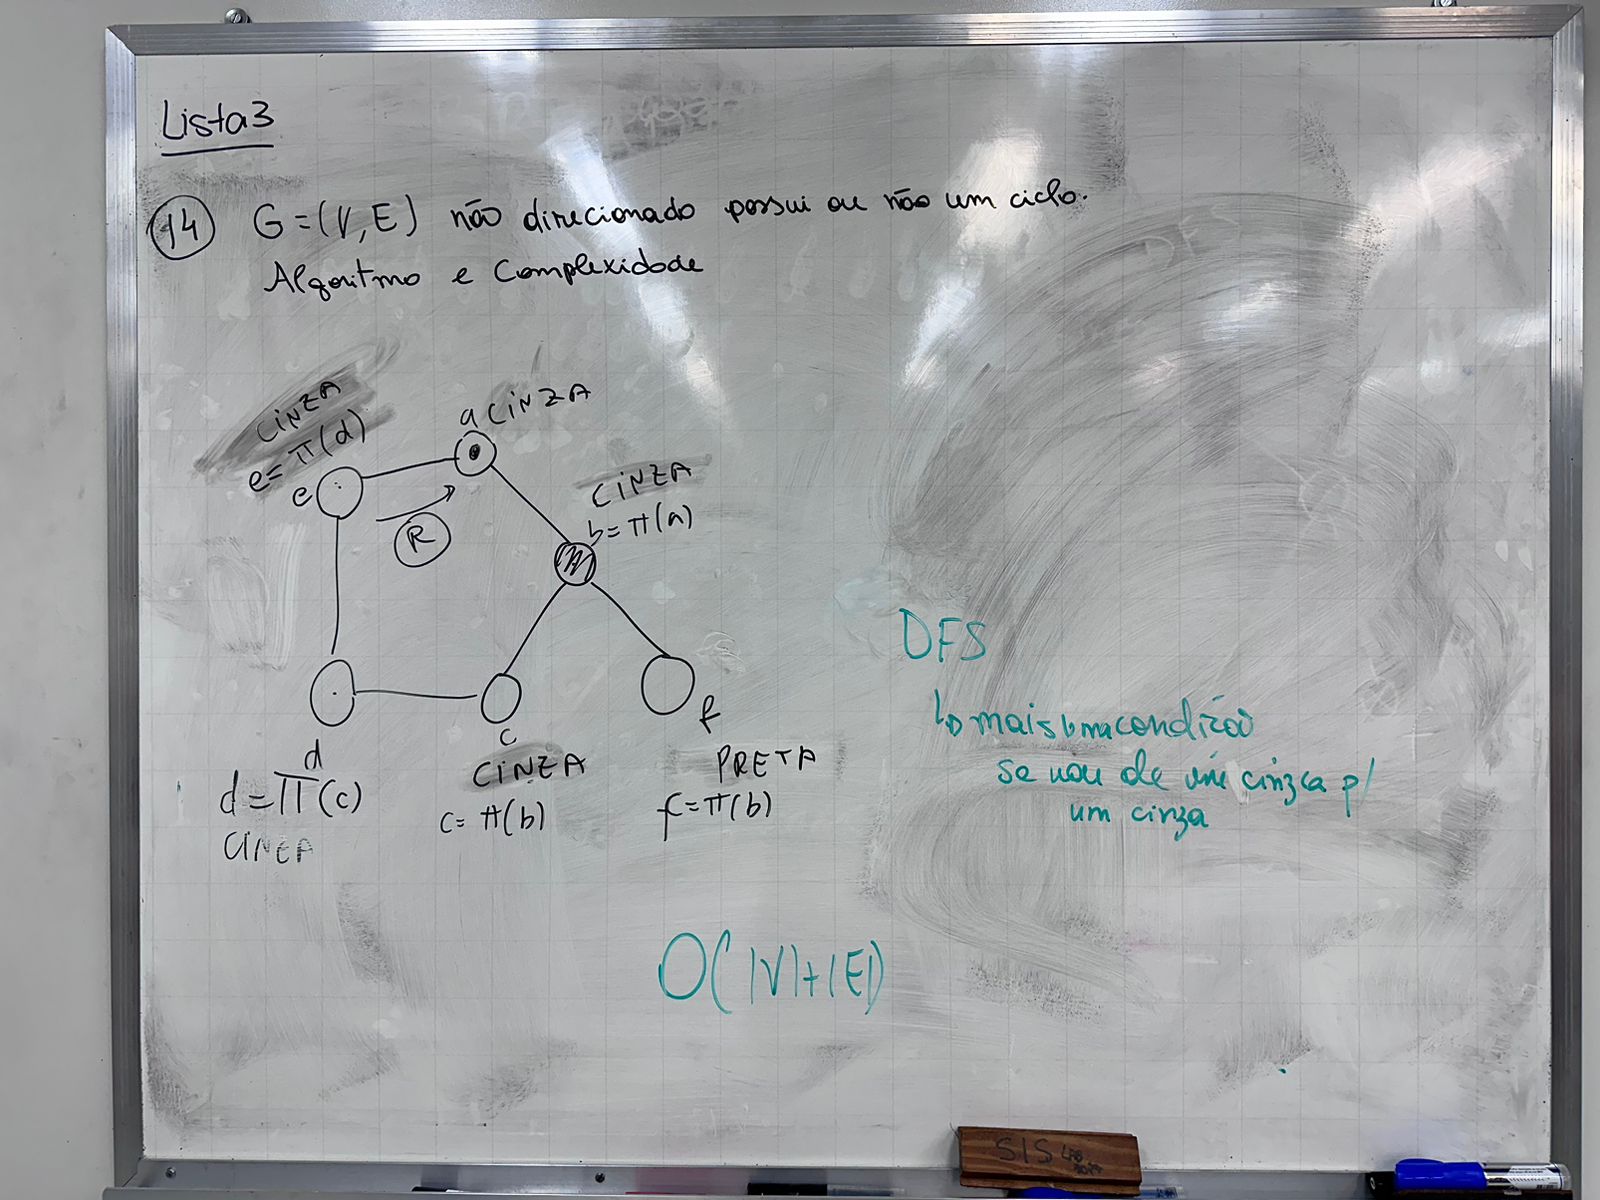 Lista3
14 G=(V,E) não direcionado possui ou não um ciclo.
Algoritmo e Complexidade
CINZA
e=π(d)
e
a CINZA
R
CINZA
b=π(a)
d
d=π(c)
CINZA
c
CINZA
c=π(b)
f
PRETA
f=π(b)
DFS
↳ mais uma condição
se vou de um cinza p/
um cinza
O(|V|+|E|)
SIS